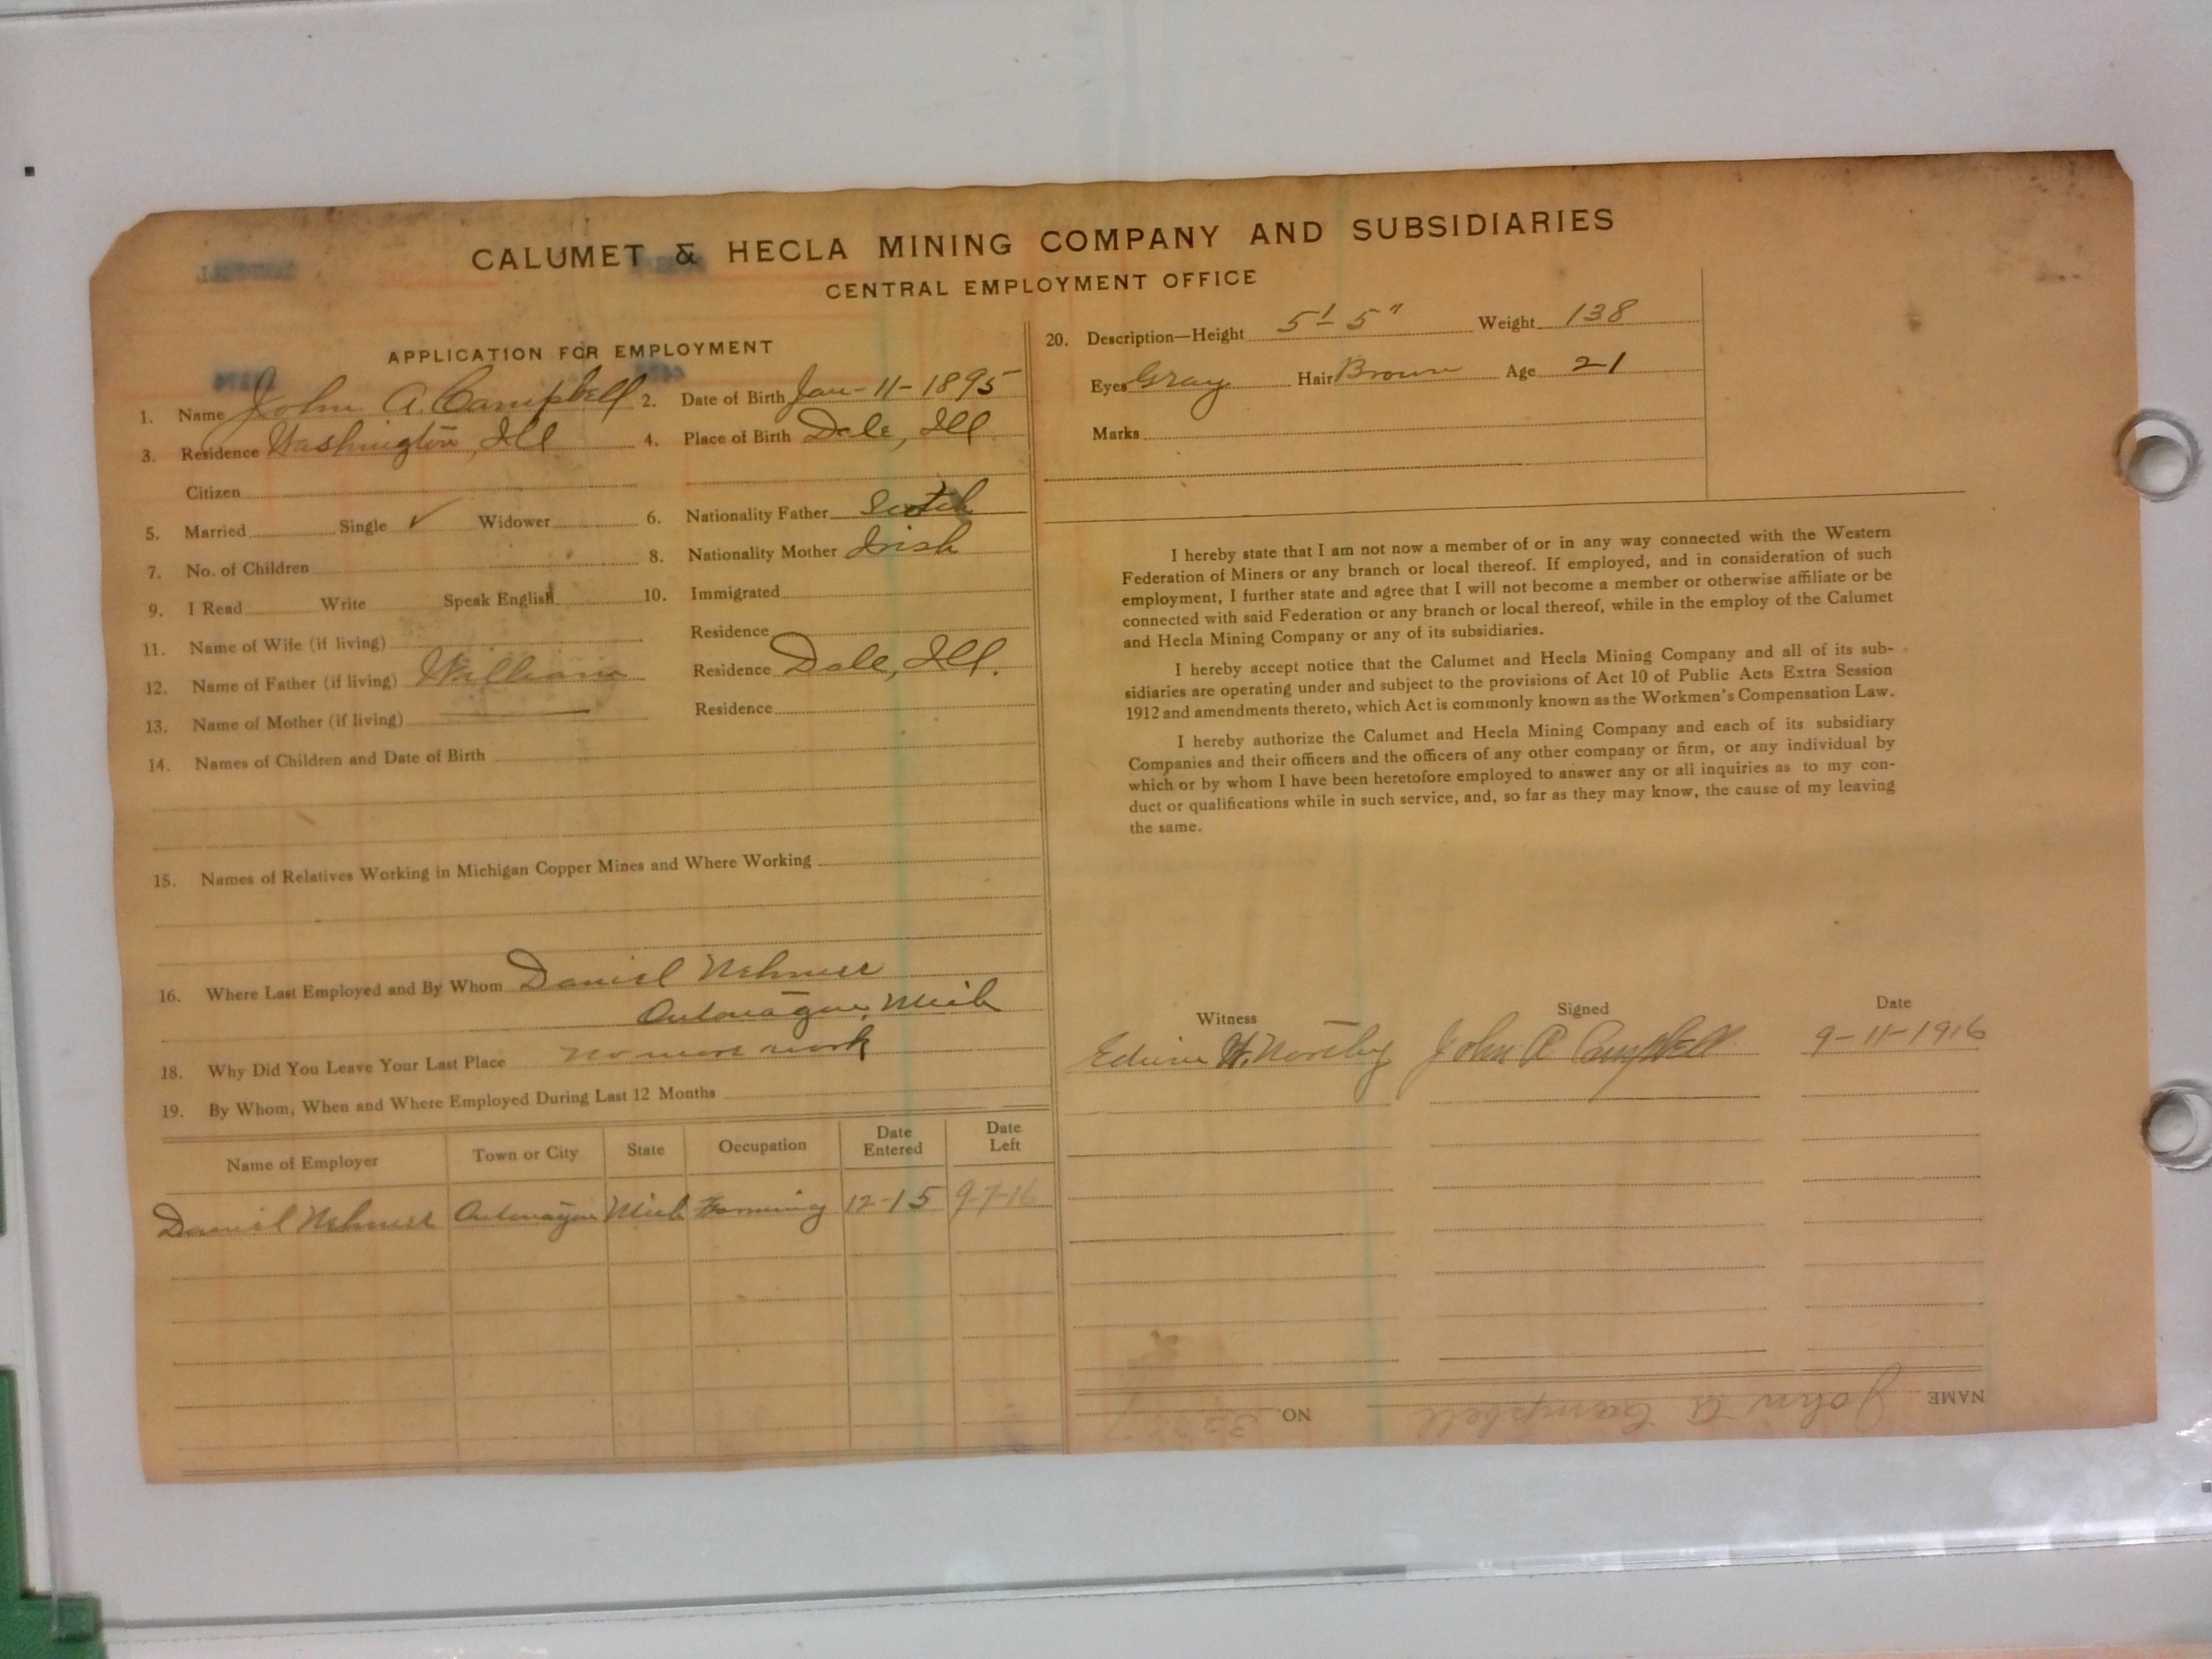 CALUMET & HECLA MINING COMPANY AND SUBSIDIARIES
CENTRAL EMPLOYMENT OFFICE
APPLICATION FOR EMPLOYMENT
1. Name John A. Campbell 2. Date of Birth Jan-11-1895
3. Residence Washington, Ill 4. Place of Birth Dale, Ill.
Citizen
5. Married Single ✓ Widower 6. Nationality Father Scotch
7. No. of Children 8. Nationality Mother Irish
9. I Read Write Speak English 10. Immigrated
11. Name of Wife (if living) Residence
12. Name of Father (if living) William Residence Dale, Ill.
13. Name of Mother (if living) Residence
14. Names of Children and Date of Birth
15. Names of Relatives Working in Michigan Copper Mines and Where Working
16. Where Last Employed and By Whom Daniel
Mich
18. Why Did You Leave Your Last Place no more work
19. By Whom, When and Where Employed During Last 12 Months
Name of Employer Town or City State Occupation Date Entered Date Left
Daniel Mich Farming 12-15 9-7-16
20. Description—Height 5'-5" Weight 138
Eyes Gray Hair Brown Age 21
Marks
I hereby state that I am not now a member of or in any way connected with the Western
Federation of Miners or any branch or local thereof. If employed, and in consideration of such
employment, I further state and agree that I will not become a member or otherwise affiliate or be
connected with said Federation or any branch or local thereof, while in the employ of the Calumet
and Hecla Mining Company or any of its subsidiaries.
I hereby accept notice that the Calumet and Hecla Mining Company and all of its sub-
sidiaries are operating under and subject to the provisions of Act 10 of Public Acts Extra Session
1912 and amendments thereto, which Act is commonly known as the Workmen's Compensation Law.
I hereby authorize the Calumet and Hecla Mining Company and each of its subsidiary
Companies and their officers and the officers of any other company or firm, or any individual by
which or by whom I have been heretofore employed to answer any or all inquiries as to my con-
duct or qualifications while in such service, and, so far as they may know, the cause of my leaving
the same.
Witness Signed Date
Edwin John A Campbell 9-11-1916
NAME John A Campbell NO.